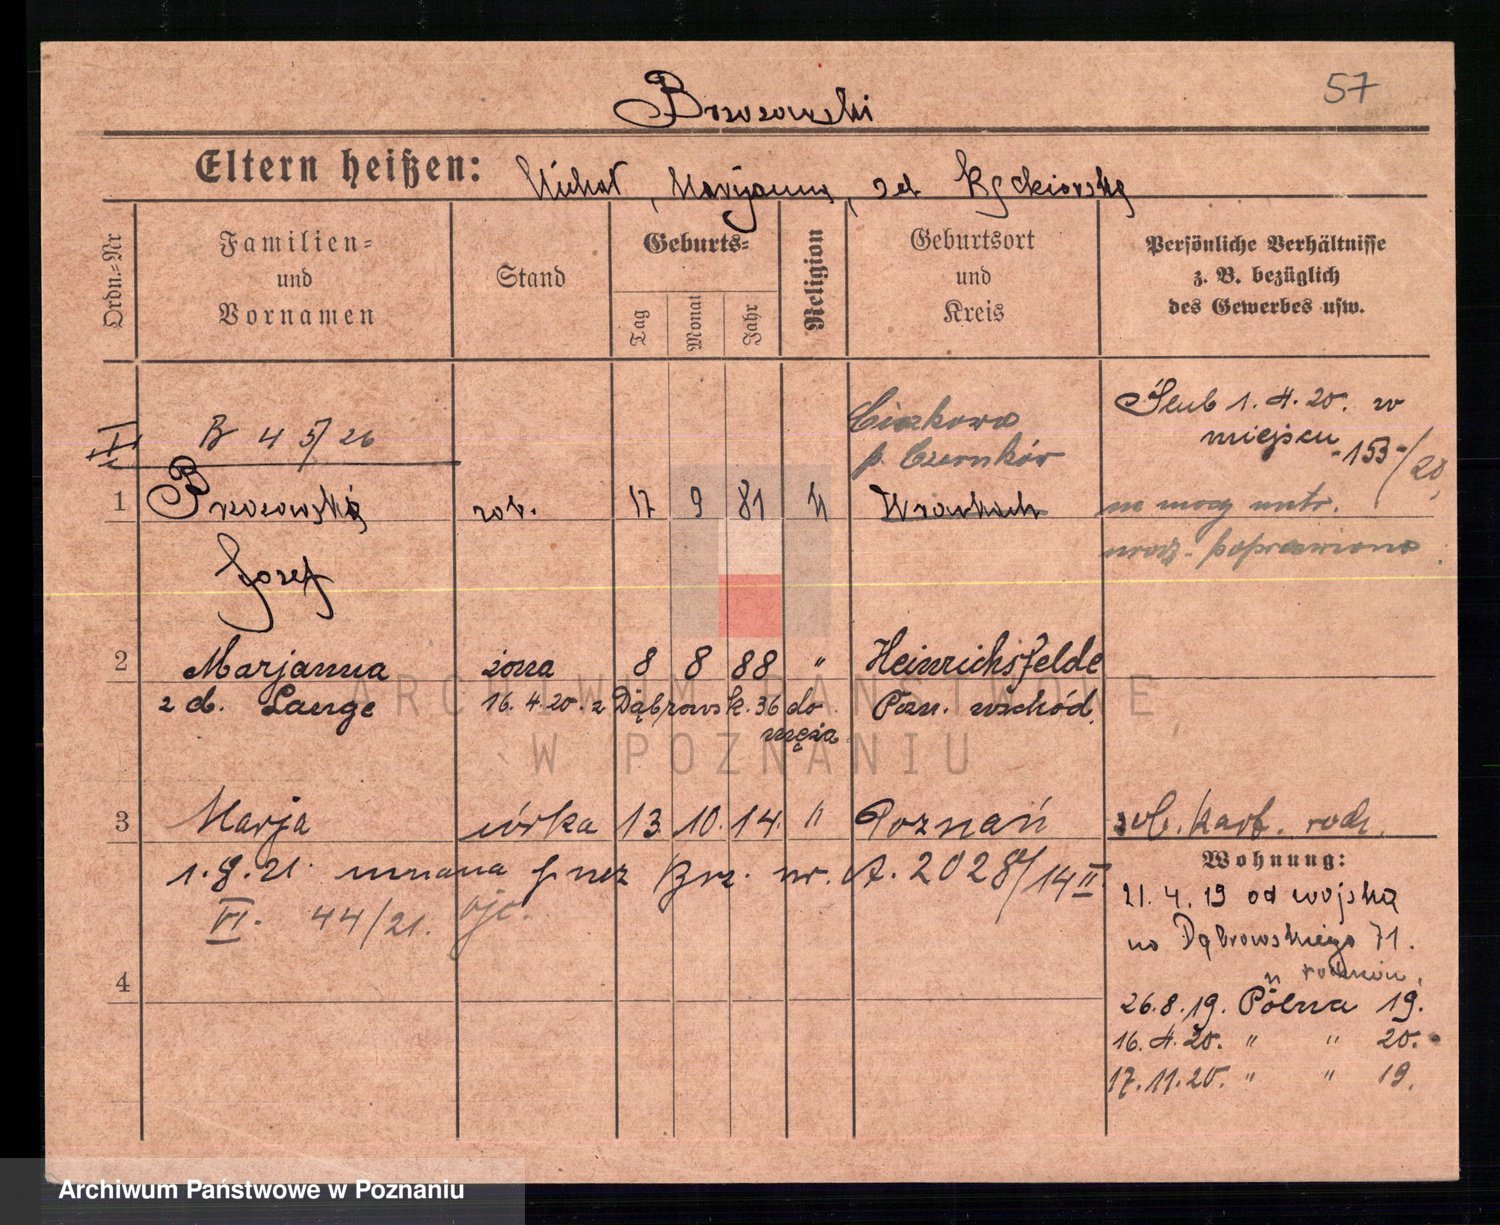 57
Brzozowski
Eltern heißen: Michał, Marijanna, zd
Ordn.=Nr
Familien=
und
Vornamen
Stand
Geburts=
Tag
Monat
Jahr
Religion
Geburtsort
und
Kreis
Persönliche Verhältnisse
z. B. bezüglich
des Gewerbes usw.
B 4 5/26
p. Czernków
Ślub 1. 4. 20. w
miejscu -153-/20
1 Brzozowski rob. 17 9 81 Wronkach
na mocy metr.
urodz. poprawiono
Józef
2 Marjanna żona 8 8 88 " Heinrichsfelde
z d. Lange 16. 4. 20. z Dąbrowsk. 36 do Pozn. wschód.
męża
3 Marja córka 13. 10. 14. " Poznań
1. 9. 21. uznana przez Brz. nr. A. 2028/14 II
VI. 44/21. ojc.
4
Wohnung:
21. 4. 19 od wojska
na Dąbrowskiego 71.
26. 8. 19. Pólna 19.
16. 4. 20. " " 20.
17. 11. 20. " " 19.
ARCHIWUM PAŃSTWOWE
W POZNANIU
Archiwum Państwowe w Poznaniu